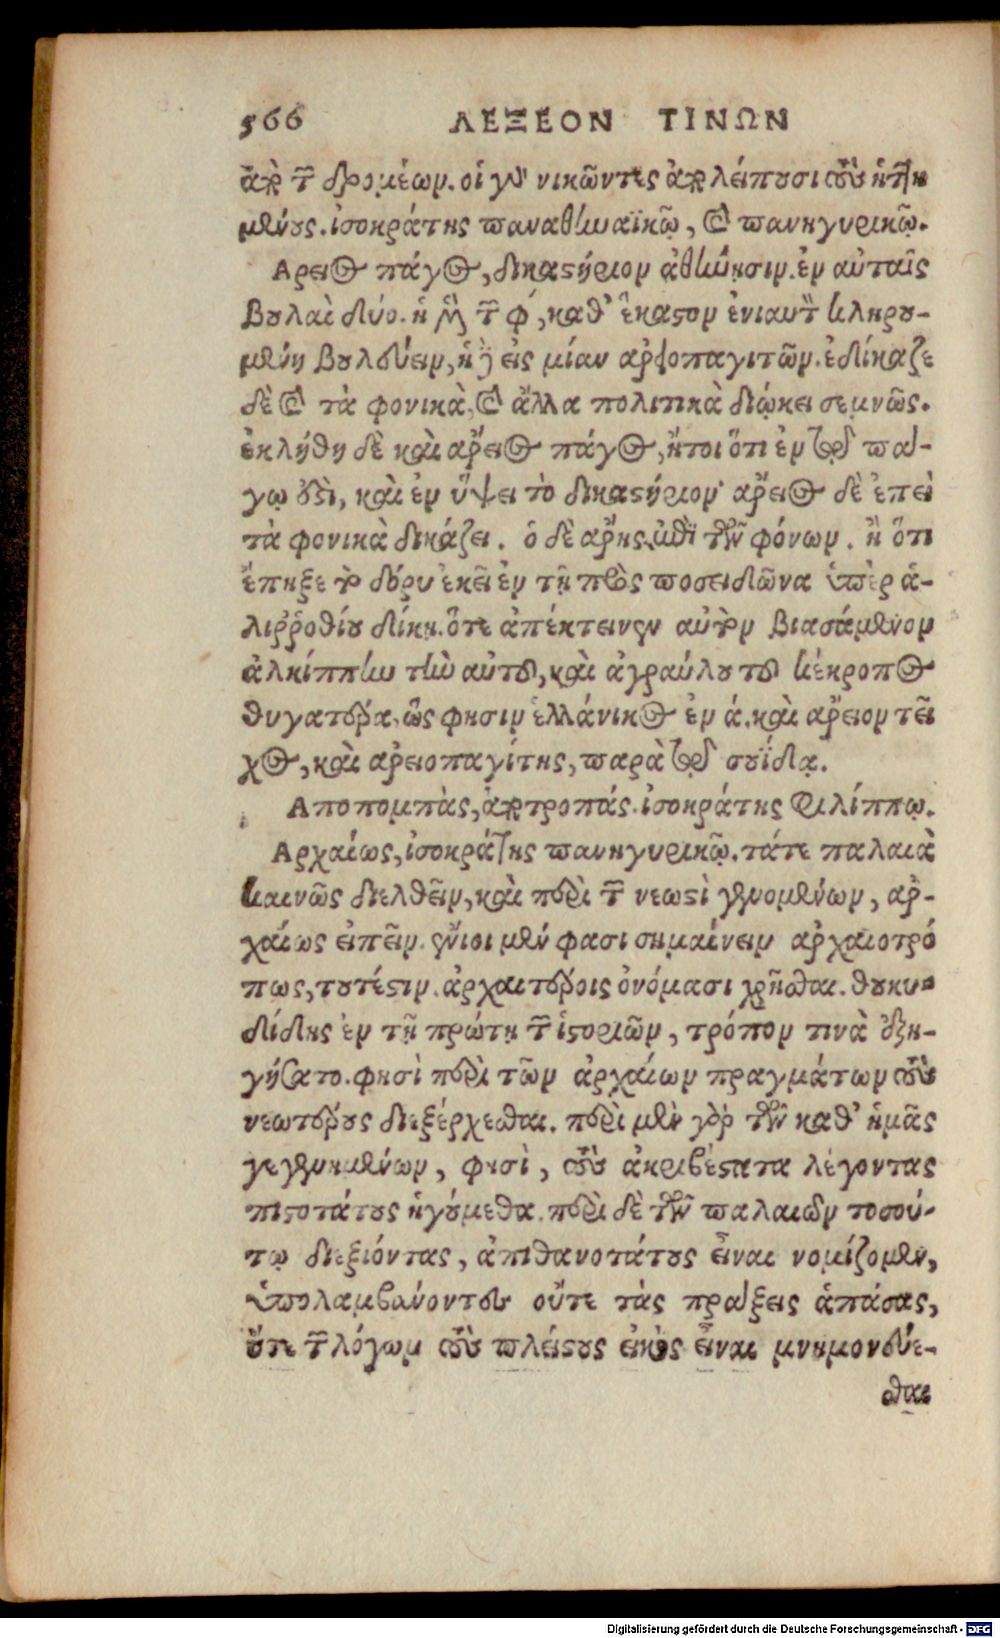 566 ΛΕΞΕΟΝ ΤΙΝΩΝ
ἀπὸ τῶν δρομέων. οἱ γὰρ νικῶντες ἀπολείπουσι τοὺς ἡττη
μένους. ἰσοκράτης παναθηναϊκῷ, καὶ πανηγυρικῷ.
Αρειος πάγος, δικαστήριον ἀθήνησιν. ἐν αὐταῖς
βουλαὶ δύο. ἡ μὲν τῶν φ΄, καθ' ἕκαστον ἐνιαυτὸν κληρου-
μένη βουλεύειν, ἡ δὲ εἰς μίαν αρεοπαγιτῶν. ἐδίκαζε
δὲ καὶ τὰ φονικὰ, καὶ ἄλλα πολιτικὰ διῴκει σεμνῶς.
ἐκλήθη δὲ καὶ αρειος πάγος, ἤτοι ὅτι ἐν τῷ πα-
γῳ ὅστὶ, καὶ ἐν ὕψει τὸ δικαστήριον· αρειος δὲ ἐπεὶ
τὰ φονικὰ δικάζει. ὁ δὲ αρης ἐπὶ τῶν φόνων. ἢ ὅτι
ἔπηξε τὸ δόρυ ἐκεῖ ἐν τῇ πρὸς ποσειδῶνα ὑπὲρ ἁ-
λιῤῥοθίου δίκῃ. ὅτε ἀπέκτεινεν αὐτὸν βιασάμενον
ἀλκίππην τὴν αὐτοῦ, καὶ ἀγραύλου τοῦ κέκροπος
θυγατέρα, ὥς φησιν ἑλλάνικος ἐν ά. καὶ αρειον τεῖ
χος, καὶ αρειοπαγίτης, παρὰ τῷ σουΐδᾳ.
Αποπομπὰς, ἀποτροπάς. ἰσοκράτης φιλίππῳ.
Αρχαίως, ἰσοκράτης πανηγυρικῷ. τάτε παλαιὰ
καινῶς διελθεῖν, καὶ περὶ τῶν νεωστὶ γενομένων, αρ-
χαίως εἰπεῖν. ἔνιοι μέν φασι σημαίνειν αρχαιοτρό
πως, τουτέστιν. ἀρχαιτέροις ὀνόμασι χρῆσθαι. θουκυ-
δίδης ἐν τῇ πρώτῃ τῶν ἱστοριῶν, τρόπον τινὰ ἐξη-
γήσατο. φησὶ περὶ τῶν ἀρχαίων πραγμάτων τοὺς
νεωτέρους διεξέρχεσθαι. περὶ μὲν γὰρ τῶν καθ' ἡμᾶς
γεγενημένων, φησὶ, τοὺς ἀκριβέστατα λέγοντας
πιστοτάτους ἡγούμεθα. περὶ δὲ τῶν παλαιῶν τοσού-
τῳ διεξιόντας, ἀπιθανοτάτους εἶναι νομίζομεν,
ὑπολαμβάνοντες οὔτε τὰς πράξεις ἁπάσας,
οὔτε τῶν λόγων τοὺς πλείστους εἰκὸς εἶναι μνημονεύε-
σθαι
Digitalisierung gefördert durch die Deutsche Forschungsgemeinschaft - DFG